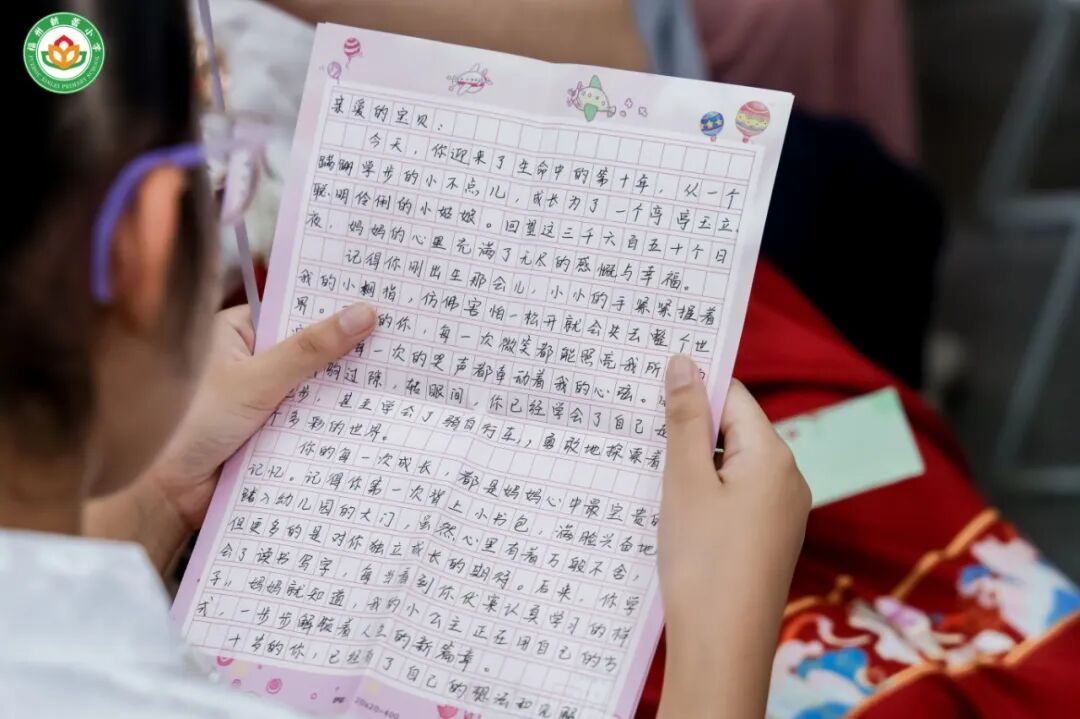 福州新蕾小学
FUZHOU XINLEI PRIMARY SCHOOL
亲爱的宝贝:
今天,你迎来了生命中的第十年,从一个
蹒跚学步的小不点儿,成长为了一个亭亭玉立、
聪明伶俐的小姑娘。回望这三千六百五十个日
夜,妈妈的心里充满了无尽的感慨与幸福。
记得你刚出生那会儿,小小的手紧紧握着
我的小拇指,仿佛害怕一松开就会失去整个世
界。的你,每一次微笑都能照亮我所
每一次的哭声都牵动着我的心弦。
驹过隙,转眼间,你已经学会了自己走
步,甚至学会了骑自行车,勇敢地探索着
个多彩的世界。
你的每一次成长,都是妈妈心中最宝贵的
记忆。记得你第一次背上小书包,满脸兴奋地
踏入幼儿园的大门,虽然心里有着万般不舍,
但更多的是对你独立成长的期待。后来,你学
会了读书写字,每当看到你伏案认真学习的样
子,妈妈就知道,我的小公主正在用自己的方
式,一步步解锁着人生的新篇章。
十岁的你,已经有了自己的想法和见解
20x20=400